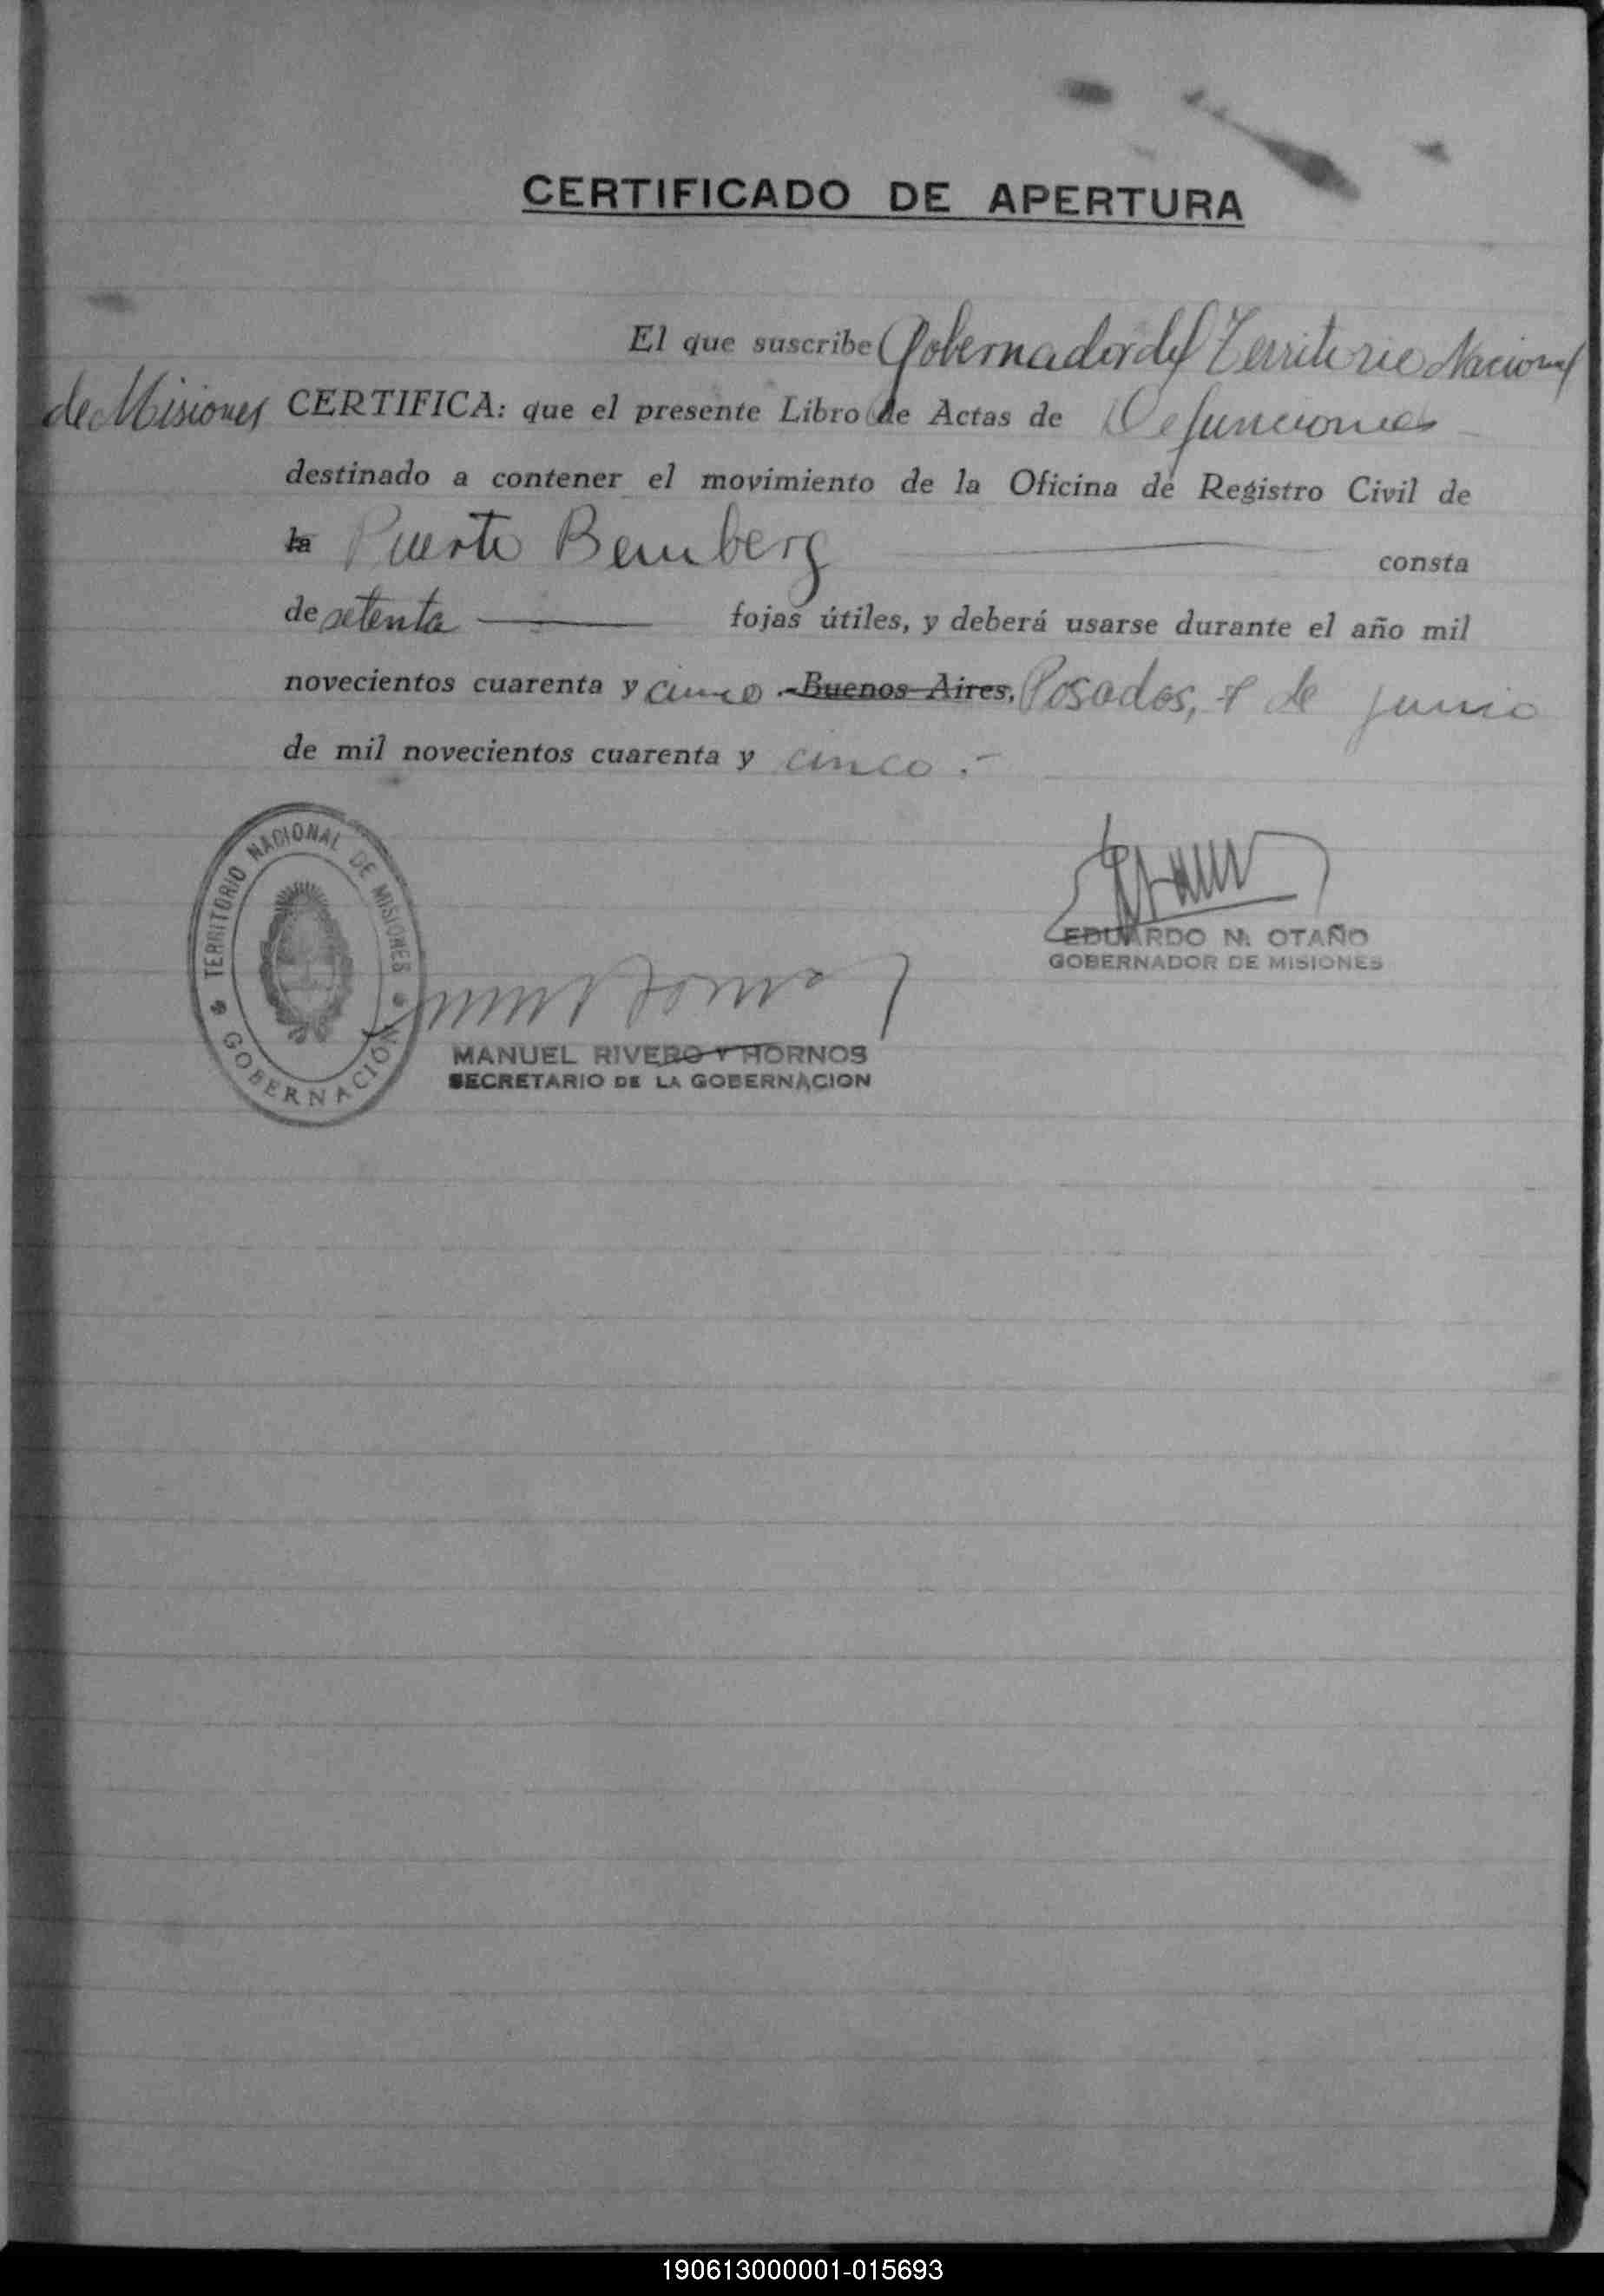 CERTIFICADO DE APERTURA
El que suscribe Gobernador del Territorio Nacional
de Misiones CERTIFICA: que el presente Libro de Actas de Defunciones
destinado a contener el movimiento de la Oficina de Registro Civil de
la Puerto Bemberg consta
de setenta fojas útiles, y deberá usarse durante el año mil
novecientos cuarenta y cinco .-Buenos Aires, Posadas, de junio
de mil novecientos cuarenta y cinco.-
TERRITORIO NACIONAL DE MISIONES
GOBERNACIÓN
EDUARDO N. OTAÑO
GOBERNADOR DE MISIONES
MANUEL RIVERO Y HORNOS
SECRETARIO DE LA GOBERNACION
190613000001-015693